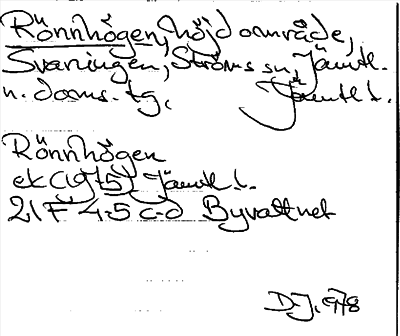 Rönnhögen, höjdområde,
Svaningen, Ströms sn, Jämtl.
n. doms. tg, Jämtl l.
Rönnhögen
ek (1975) Jämtl l.
21 F 4-5 c-d Byvattnet
D-J. 978